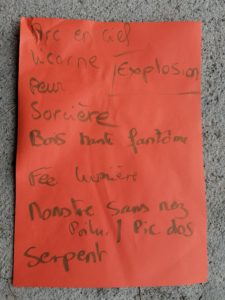 Arc en ciel
Licorne
Explosion
Peur
Sorcière
Bois hanté fantôme
Fée lumière
Monstre sans nez
Poilu / Pic dos
Serpent